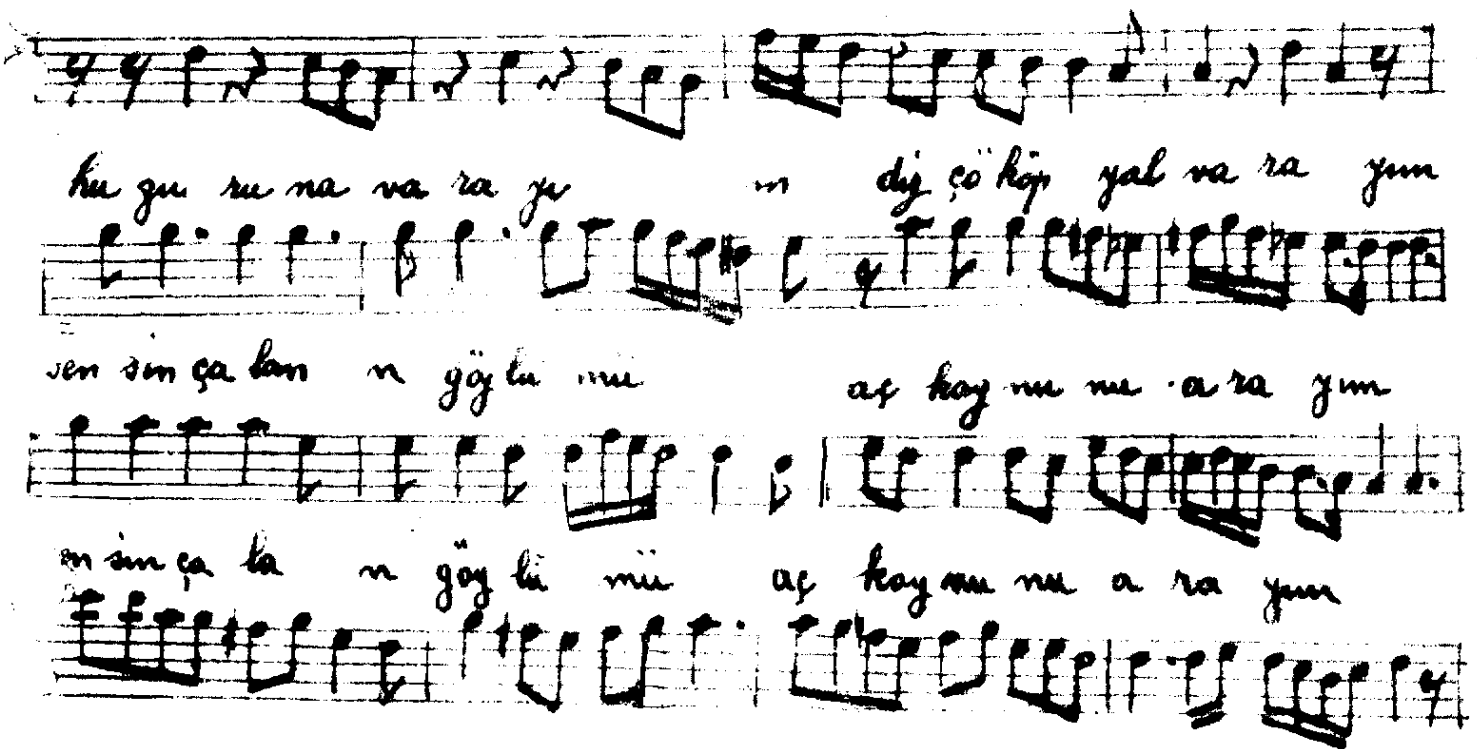 hu zu ru na va ra yı m diz çö köp yal va ra yım
sen sin ça lan n göy lü mü aç koy nu nu a ra yım
en sin ça la n göy lü mü aç koy nu nu a ra yım